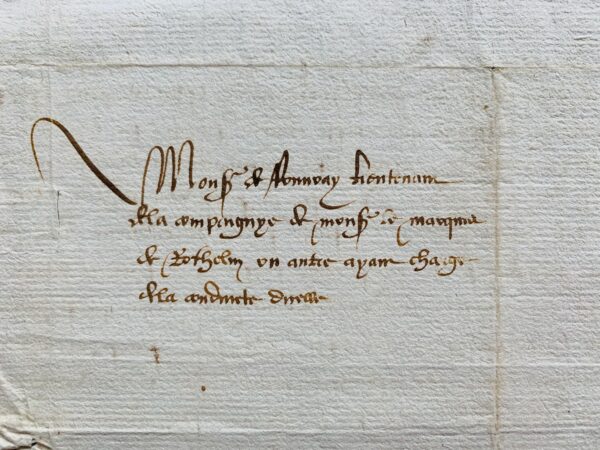 Monsr de Lieutenant
de la compaignye de monsr le marquis
de Rothelin ou autre ayant charge
de la conduicte d'icelle